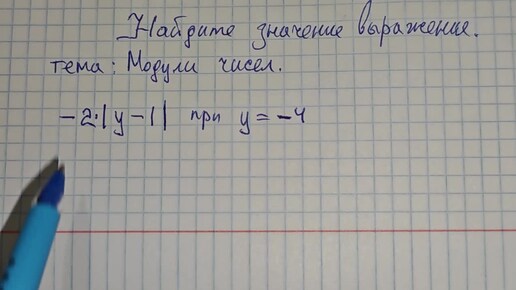 Найдите значение выражение.
тема: Модули чисел.
-2·|y-1| при y=-4